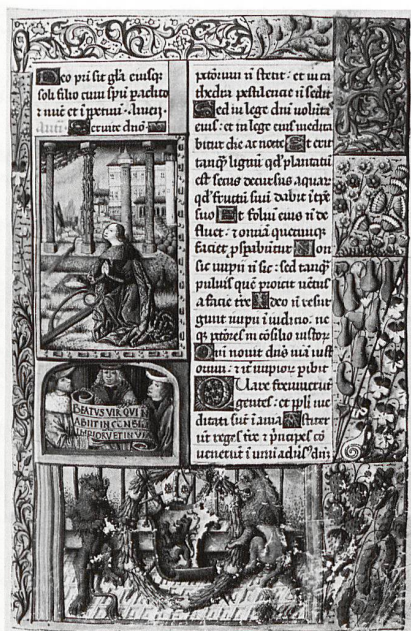 Deo pri sit gla eiusq;
soli filio cum spu paclito
et nunc et i ppetuu. Amen
Seruite dno
BEATVS VIR QVI N
ABIIT IN CONSILI
IMPIORVM ET IN VIA
pctorum n stetit: et in ca
thedra pestilencie n sedit
Sed in lege dni volūtas
eius: et in lege eius medita
bitur die ac nocte Et erit
tanq; lignū qd plantatū
est secus decursus aquar
qd fructū suū dabit i tpe
suo Et foliū eius nō de
fluet: et omnia quecunq;
faciet pspabūtur Non
sic impii nō sic: sed tanq;
puluis quē proicit uētus
a facie tre Ideo nō resur
gunt impii i iudicio: ne
q; pctores in cōsilio iustor
Qm nouit dns uiā iust
orum: et iter impior pibit
Quare fremuerūt
gentes: et ppli me
ditati sūt inania Astiter
ūt reges tre et prīcipes cō
uenerūt i unū aduers dn